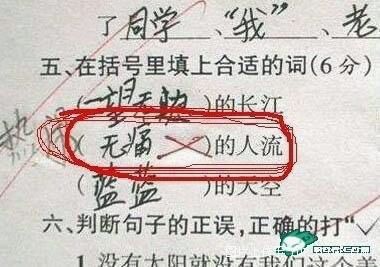 了同学、“我”、老
五、在括号里填上合适的词(6分)
(一望无边)的长江
(无痛)的人流
(蓝蓝)的天空
六、判断句子的正误,正确的打“√
1.没有太阳就没有我们这个美